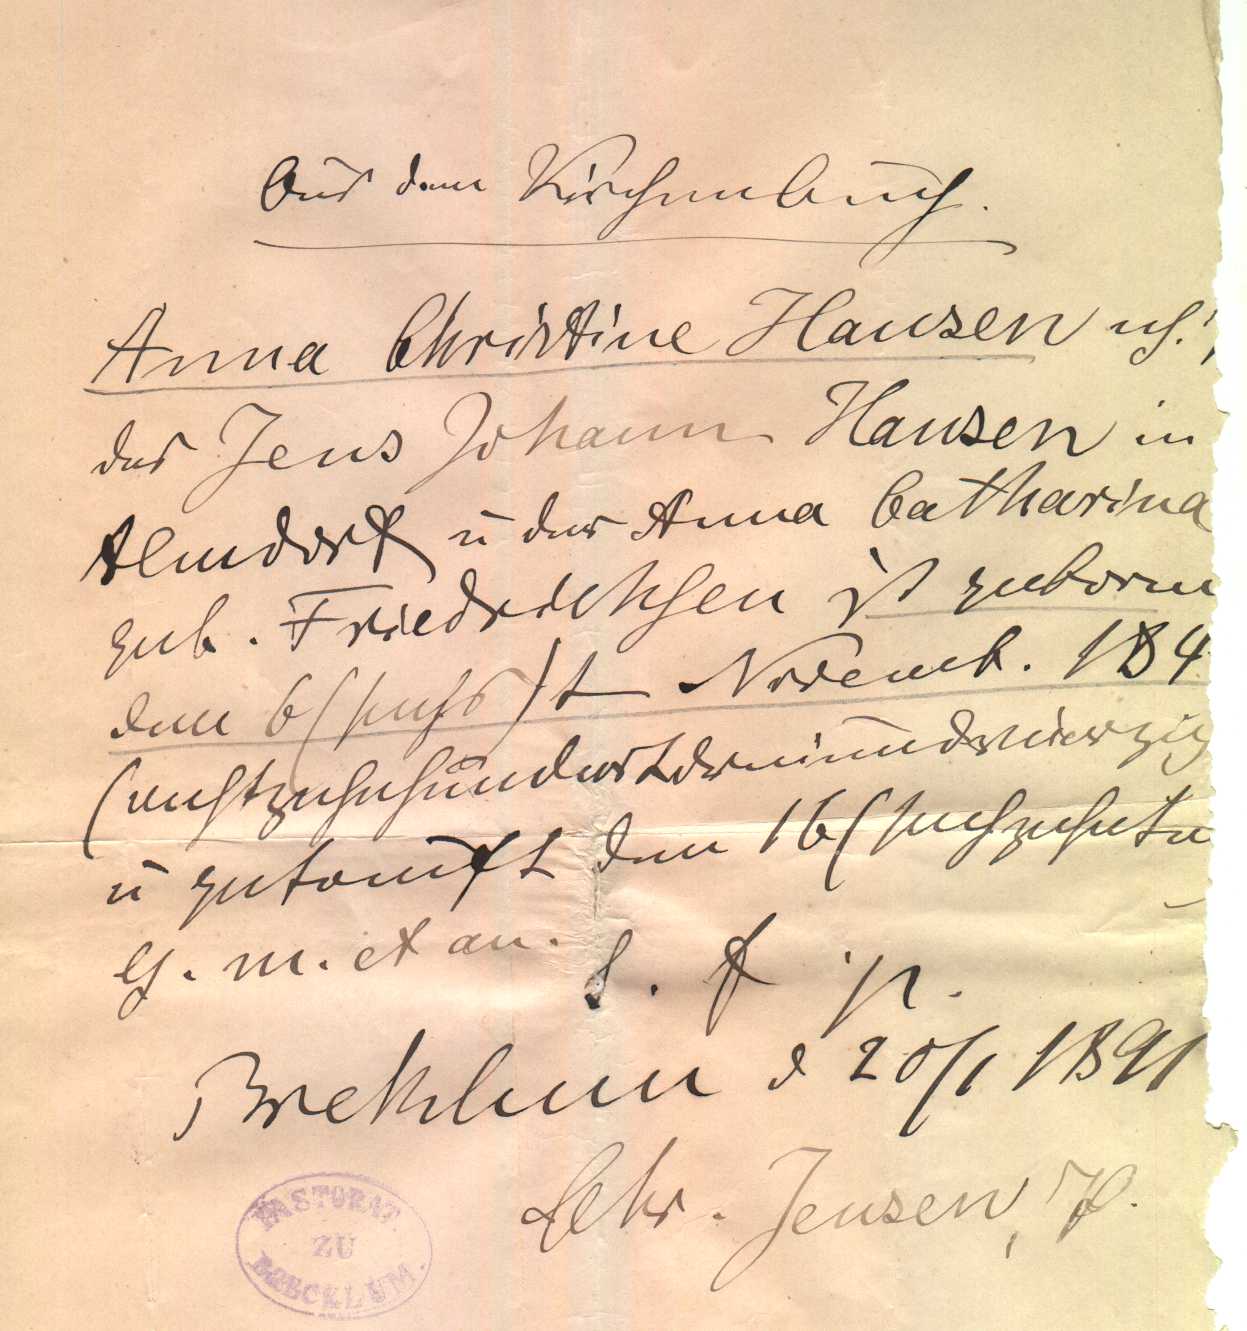 Aus dem Kirchenbuch.
Anna Christine Hansen
des Jens Johann Hansen in
Almdorf u der Anna Catharina
geb. Friedrichsen ist geboren
den 6 (sechs)t Novemb. 184
(achtzehnhundertdreiundvierzig
u getauft den 16 (sechzehnten
ej. m. et an.
S. f. p.
Breklum d 20/1 1891
Chr. Jensen, P.
PASTORAT
ZU
BRECKLUM.